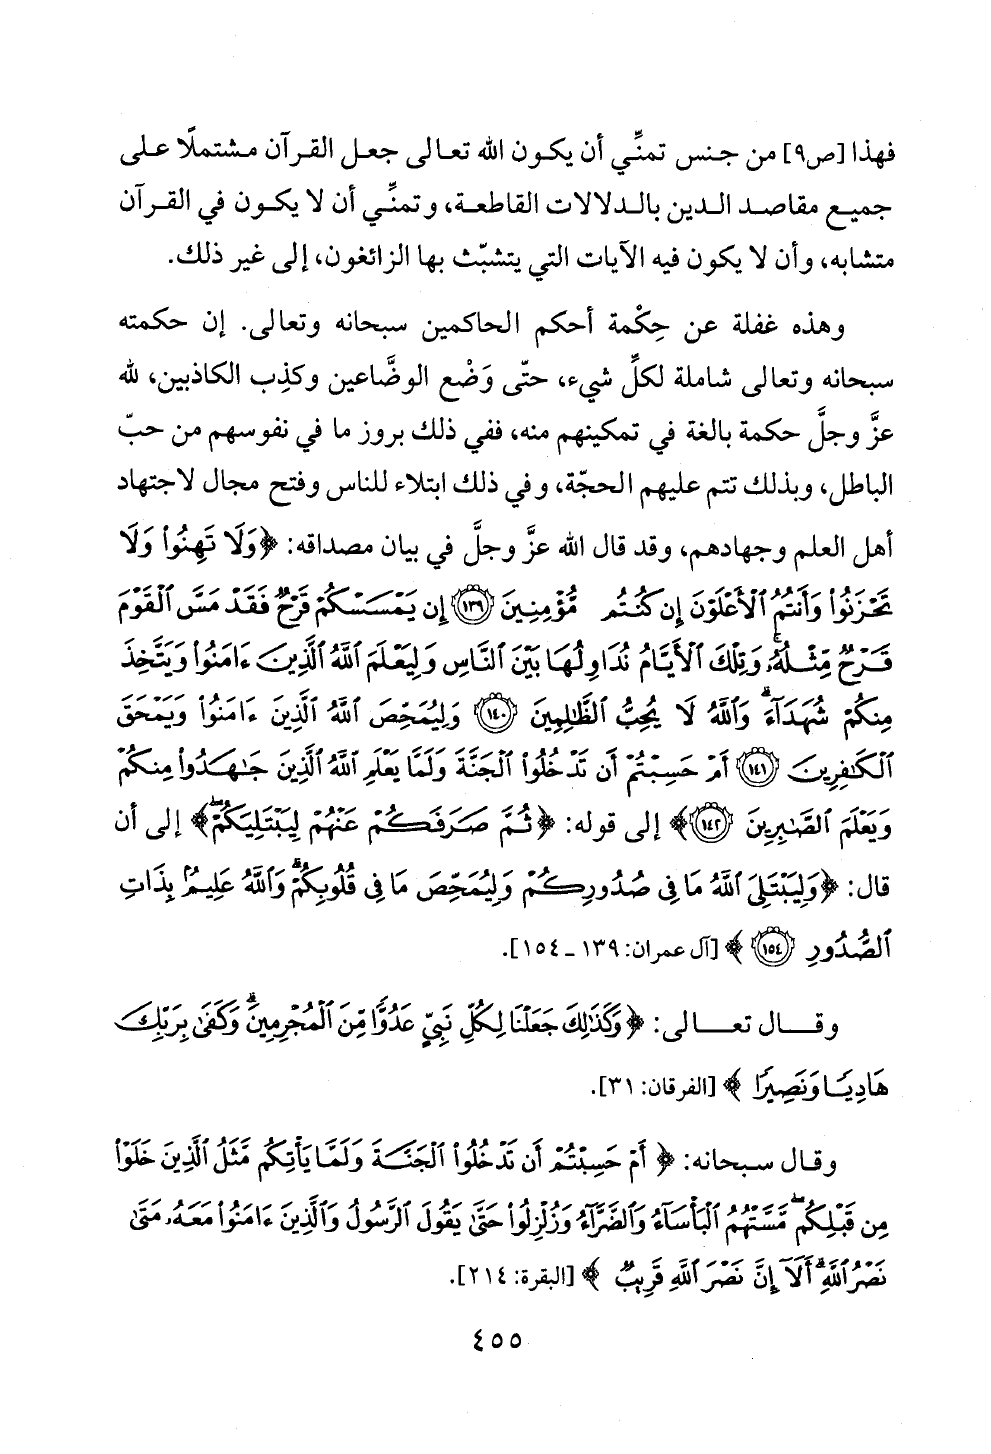 فهذا [ص٩] من جنس تمنِّي أن يكون الله تعالى جعل القرآن مشتملًا على
جميع مقاصد الدين بالدلالات القاطعة، وتمنِّي أن لا يكون في القرآن
متشابه، وأن لا يكون فيه الآيات التي يتشبّث بها الزائغون، إلى غير ذلك.
وهذه غفلة عن حِكْمة أحكم الحاكمين سبحانه وتعالى. إن حكمته
سبحانه وتعالى شاملة لكلِّ شيء، حتّى وَضْع الوضَّاعين وكذِب الكاذبين، لله
عزَّ وجلَّ حكمة بالغة في تمكينهم منه، ففي ذلك بروز ما في نفوسهم من حبّ
الباطل، وبذلك تتم عليهم الحجّة، وفي ذلك ابتلاء للناس وفتح مجال لاجتهاد
أهل العلم وجهادهم، وقد قال الله عزَّ وجلَّ في بيان مصداقه: ﴿وَلَا تَهِنُوا۟ وَلَا
تَحْزَنُوا۟ وَأَنتُمُ ٱلْأَعْلَوْنَ إِن كُنتُم مُّؤْمِنِينَ ﴿١٣٩﴾ إِن يَمْسَسْكُمْ قَرْحٌ فَقَدْ مَسَّ ٱلْقَوْمَ
قَرْحٌ مِّثْلُهُۥ ۚ وَتِلْكَ ٱلْأَيَّامُ نُدَاوِلُهَا بَيْنَ ٱلنَّاسِ وَلِيَعْلَمَ ٱللَّهُ ٱلَّذِينَ ءَامَنُوا۟ وَيَتَّخِذَ
مِنكُمْ شُهَدَآءَ ۗ وَٱللَّهُ لَا يُحِبُّ ٱلظَّٰلِمِينَ ﴿١٤٠﴾ وَلِيُمَحِّصَ ٱللَّهُ ٱلَّذِينَ ءَامَنُوا۟ وَيَمْحَقَ
ٱلْكَٰفِرِينَ ﴿١٤١﴾ أَمْ حَسِبْتُمْ أَن تَدْخُلُوا۟ ٱلْجَنَّةَ وَلَمَّا يَعْلَمِ ٱللَّهُ ٱلَّذِينَ جَٰهَدُوا۟ مِنكُمْ
وَيَعْلَمَ ٱلصَّٰبِرِينَ ﴿١٤٢﴾﴾ إلى قوله: ﴿ثُمَّ صَرَفَكُمْ عَنْهُمْ لِيَبْتَلِيَكُمْ ۖ﴾ إلى أن
قال: ﴿وَلِيَبْتَلِىَ ٱللَّهُ مَا فِى صُدُورِكُمْ وَلِيُمَحِّصَ مَا فِى قُلُوبِكُمْ ۗ وَٱللَّهُ عَلِيمٌۢ بِذَاتِ
ٱلصُّدُورِ ﴿١٥٤﴾﴾ [آل عمران: ١٣٩ - ١٥٤].
وقال تعالى: ﴿وَكَذَٰلِكَ جَعَلْنَا لِكُلِّ نَبِىٍّ عَدُوًّا مِّنَ ٱلْمُجْرِمِينَ ۗ وَكَفَىٰ بِرَبِّكَ
هَادِيًا وَنَصِيرًا﴾ [الفرقان: ٣١].
وقال سبحانه: ﴿أَمْ حَسِبْتُمْ أَن تَدْخُلُوا۟ ٱلْجَنَّةَ وَلَمَّا يَأْتِكُم مَّثَلُ ٱلَّذِينَ خَلَوْا۟
مِن قَبْلِكُم ۖ مَّسَّتْهُمُ ٱلْبَأْسَآءُ وَٱلضَّرَّآءُ وَزُلْزِلُوا۟ حَتَّىٰ يَقُولَ ٱلرَّسُولُ وَٱلَّذِينَ ءَامَنُوا۟ مَعَهُۥ مَتَىٰ
نَصْرُ ٱللَّهِ ۗ أَلَآ إِنَّ نَصْرَ ٱللَّهِ قَرِيبٌ﴾ [البقرة: ٢١٤].
٤٥٥